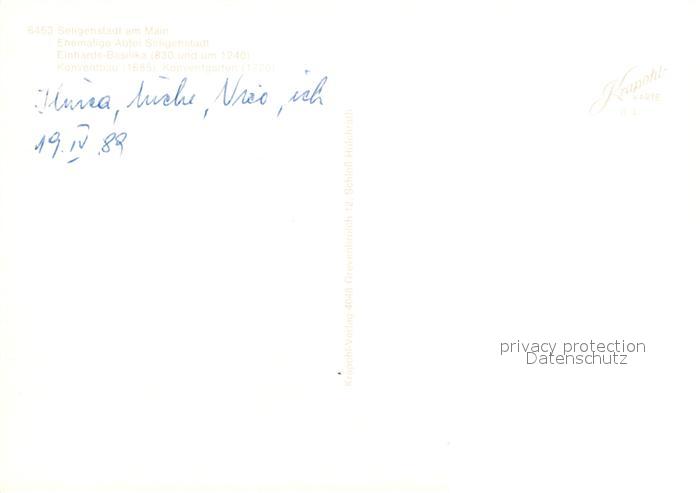 6453 Seligenstadt am Main
Ehemalige Abtei Seligenstadt
Einhards-Basilika (830 und um 1240)
Konventbau (1685), Konventgarten (1720)
Krapohl-
KARTE
Nico, ich
19. IV. 89
Krapohl-Verlag 4048 Grevenbroich 12, Schloß Hülchrath
privacy protection
Datenschutz